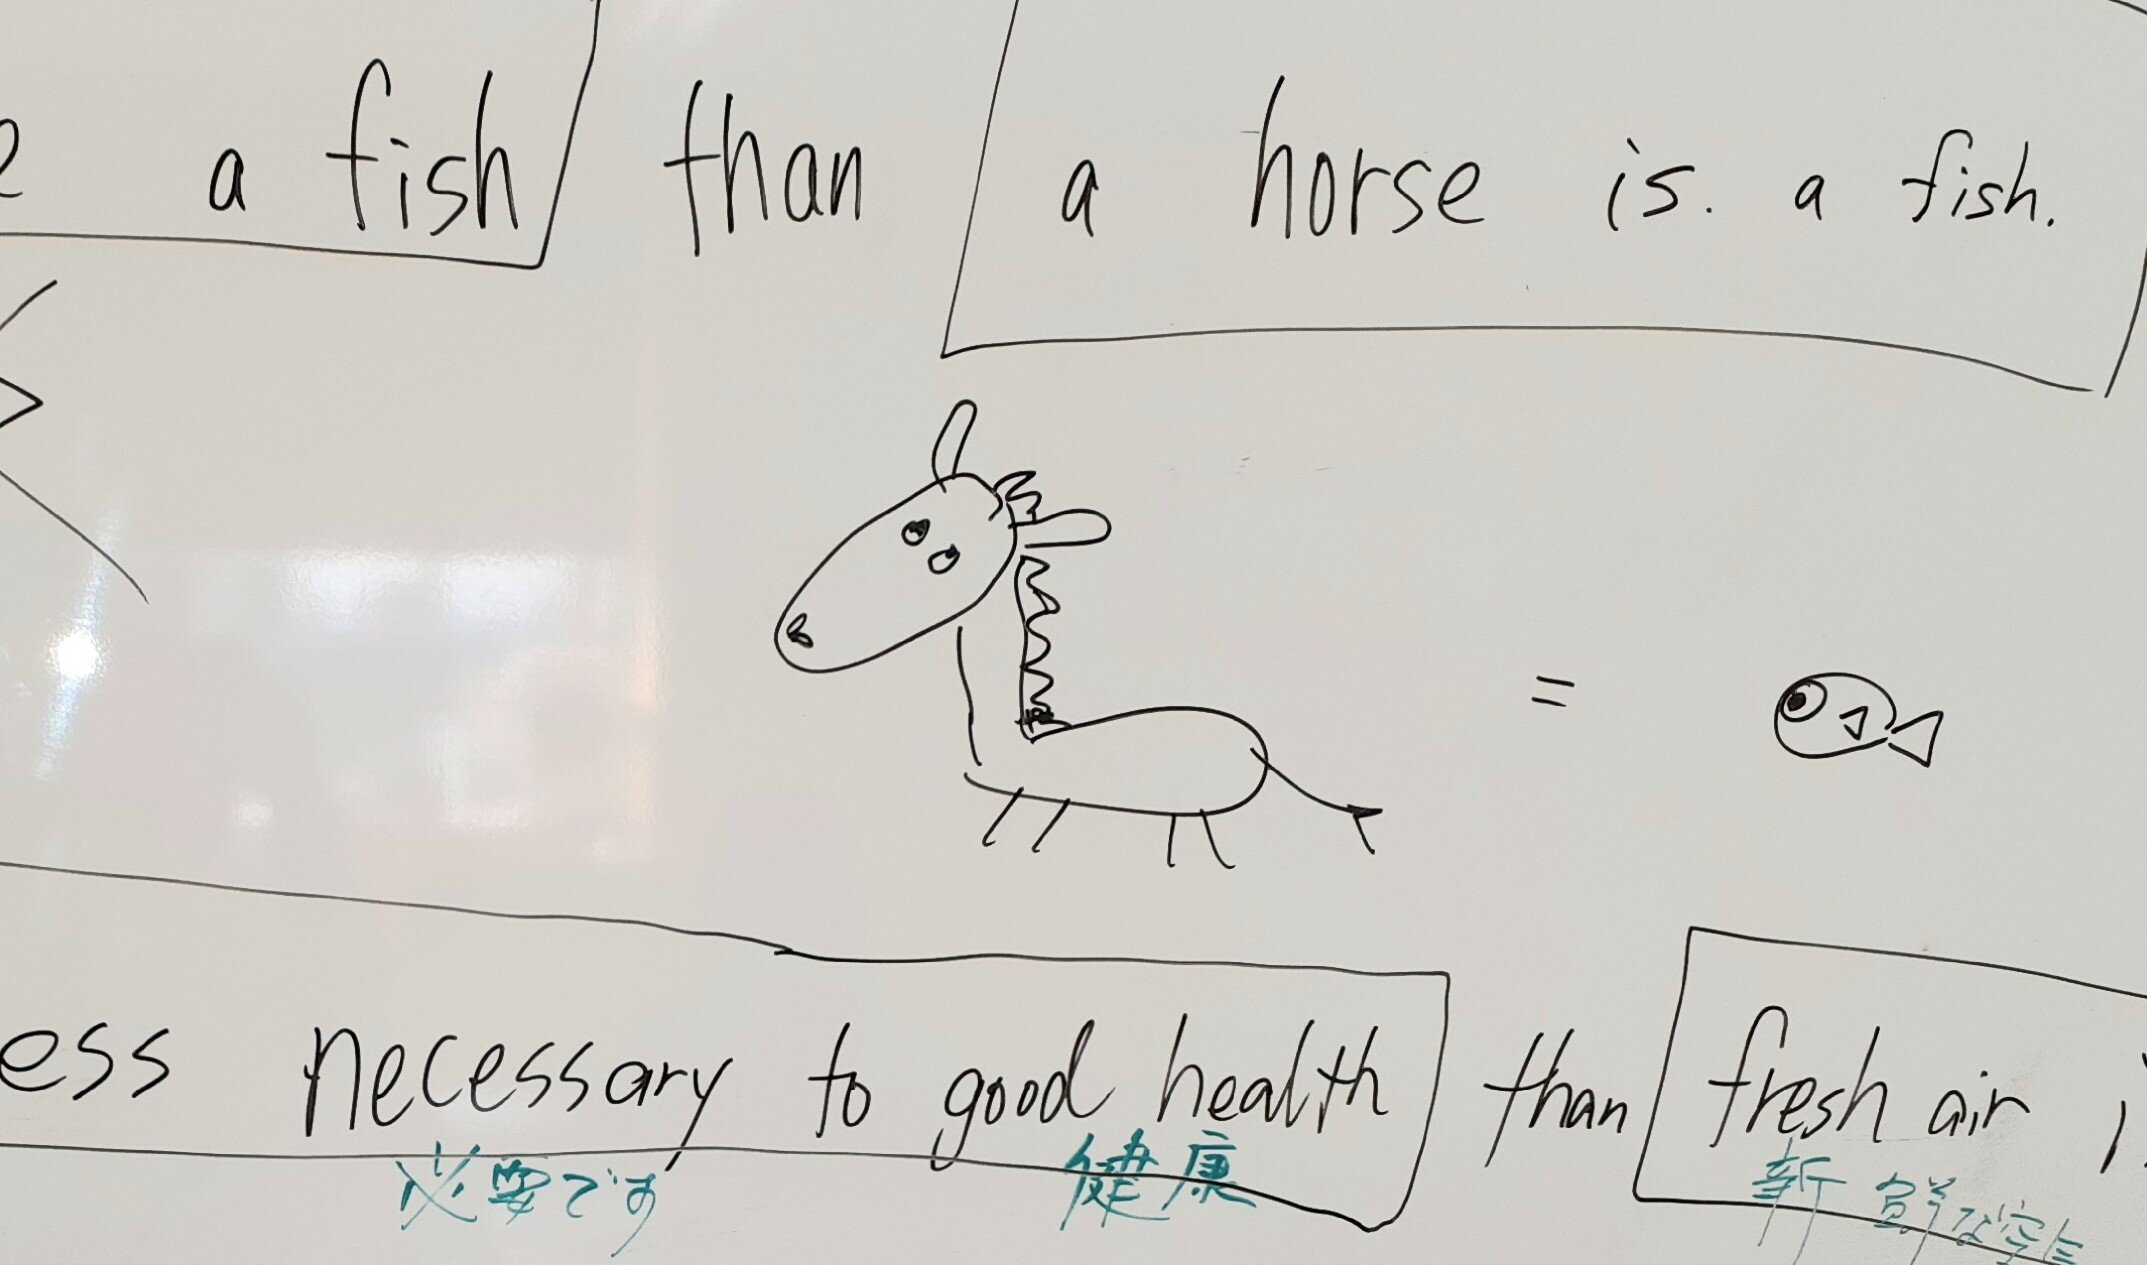 a fish than a horse is. a fish.
=
necessary to good health than fresh air
必要です 健康 新鮮な空気